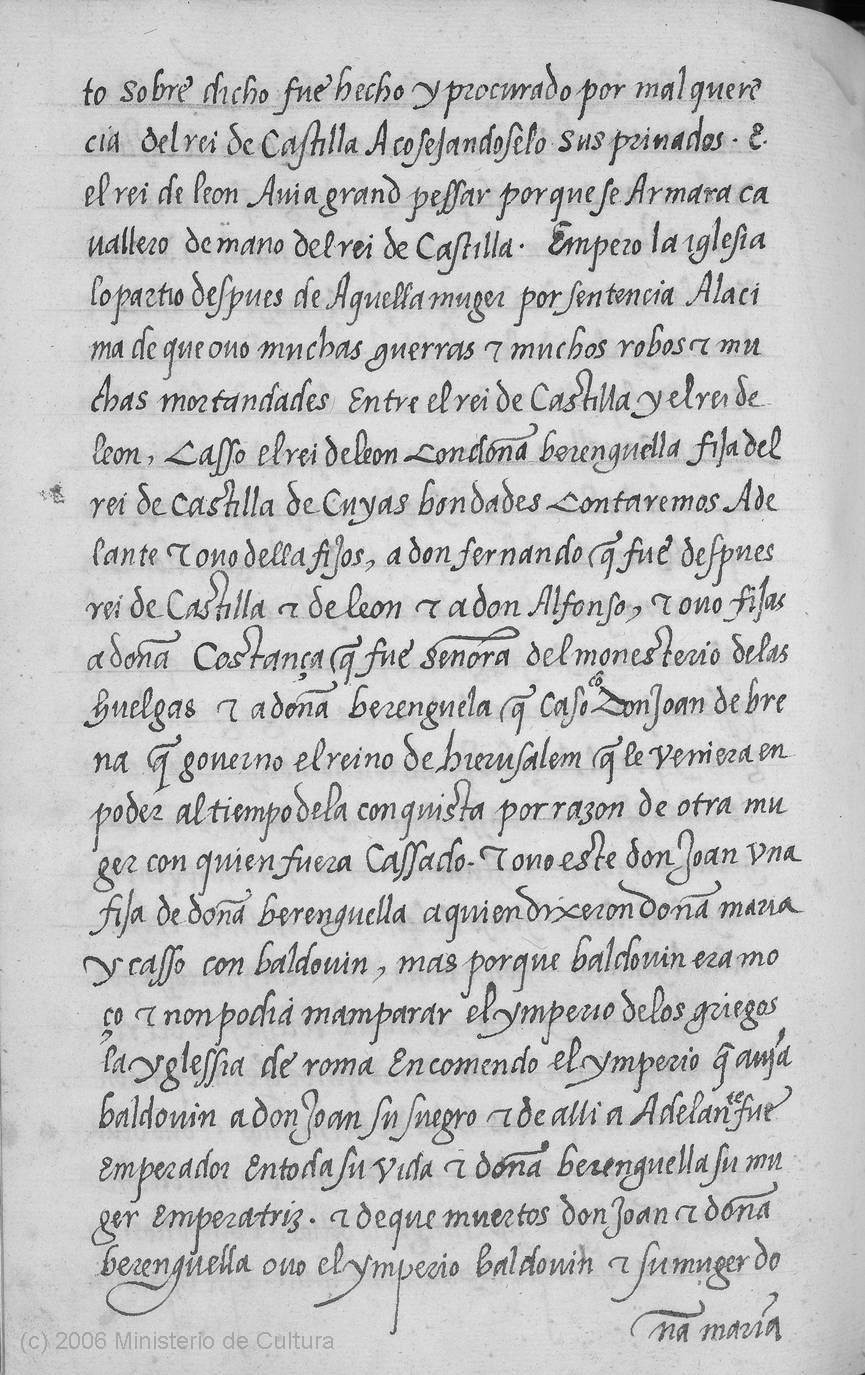 to sobre dicho fue hecho y procurado por mal querē
cia del rei de Castilla Acosejandoselo sus priuados. E.
el rei de leon Auia grand pessar por que se Armara ca
uallero de mano del rei de Castilla. Empero la iglesia
lo partio despues de Aquella muger por sentencia Alaci
ma de que ouo muchas guerras ⁊ muchos robos ⁊ mu
chas mortandades Entre el rei de Castilla y el rei de
leon, Casso el rei de leon Con doña berenguella fija del
rei de Castilla de Cuyas bondades Contaremos Ade
lante ⁊ ouo della fijos, a don fernando q̄ fue despues
rei de Castilla ⁊ de leon ⁊ a don Alfonso, ⁊ ouo fijas
a doña Costança q̄ fue señora del monesterio delas
huelgas ⁊ a doña berenguela q̄ Caso cō Don Joan de bre
na q̄ gouerno el reino de hierusalem q̄ le veniera en
poder al tiempo dela conquista por razon de otra mu
ger con quien fuera Cassado. ⁊ ouo este don Joan vna
fija de doña berenguella a quien dixeron doña maria
y casso con baldouin, mas porque baldouin era mo
ço ⁊ non podia mamparar el ymperio delos griegos
la yglessia de roma Encomendo el ymperio q̄ auia
baldouin a don Joan su suegro ⁊ de alli a Adelante fue
Emperador En toda su vida ⁊ doña berenguella su mu
ger Emperatriz. ⁊ de que muertos don Joan ⁊ doña
berenguella ouo el ymperio baldouin ⁊ su muger do
ña maria
(c) 2006 Ministerio de Cultura